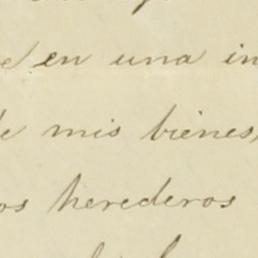 en una in
de mis bienes,
os herederos